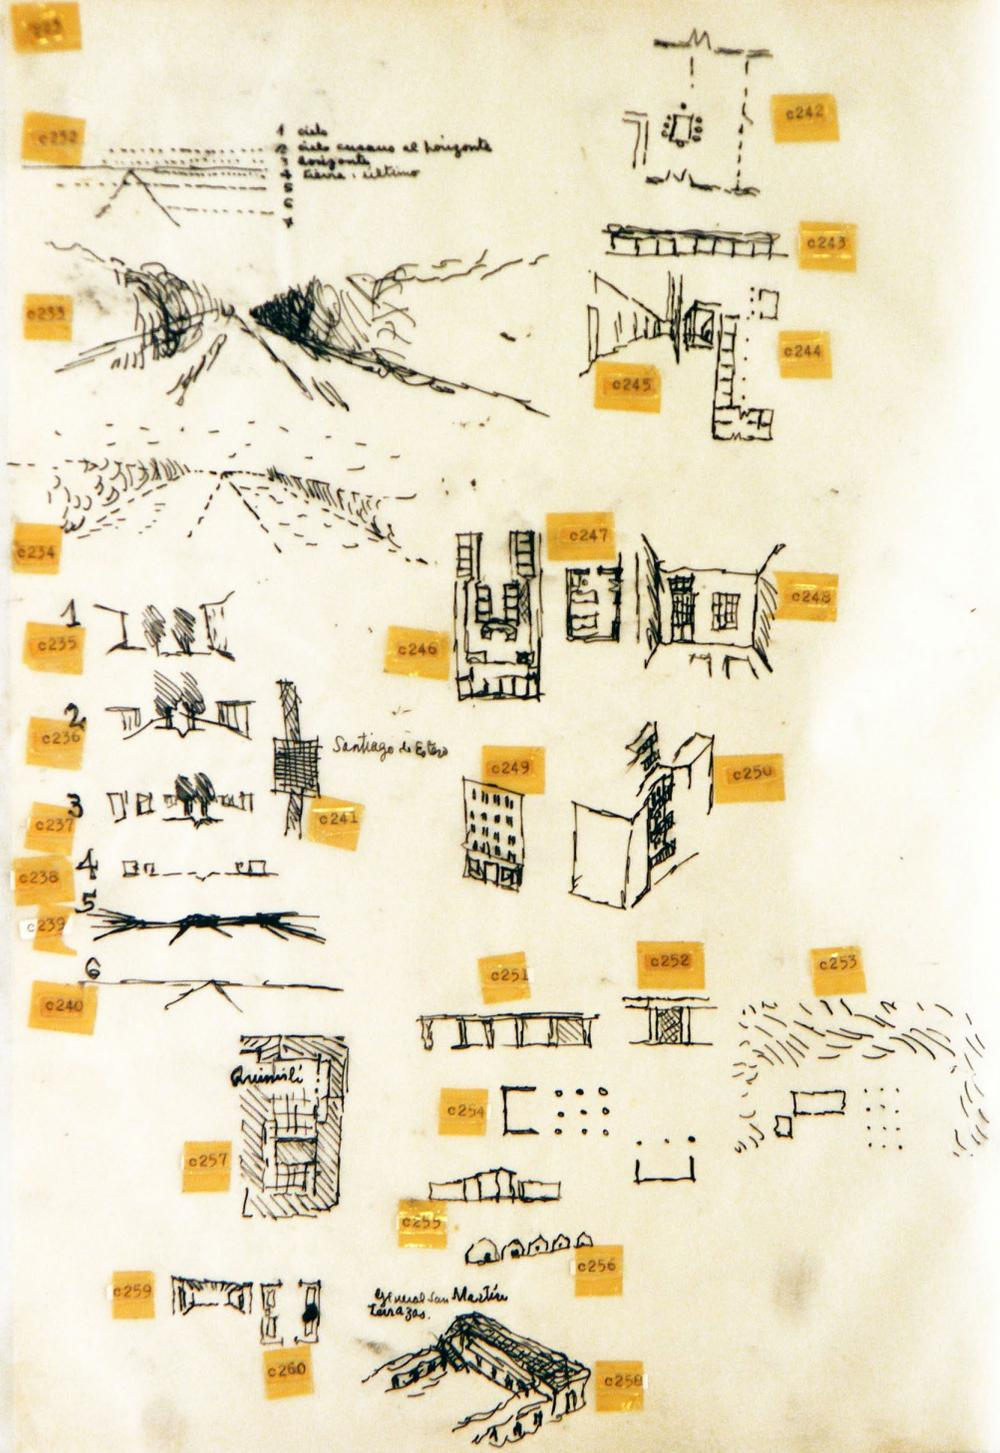 c232
1 cielo
2 cielo cusano al horizonte
3 horizonte
4 tierra : último
5
6
7
c242
c243
c233
c244
c245
c234
c247
c248
1
c235
c246
2
c236
Santiago de Estero
c249
c250
3
c237
c241
4
c238
5
c239
6
c240
c251
c252
c253
Quimilí
c254
c257
c255
c256
c259
General San Martín
terrazas.
c260
c258